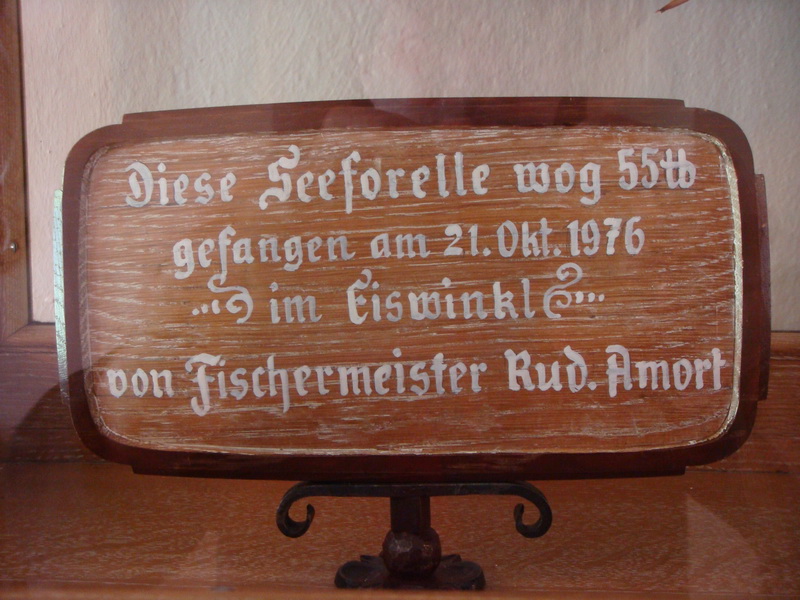 Diese Seeforelle wog 55 ℔
gefangen am 21. Okt. 1976
im Eiswinkl
von Fischermeister Rud. Amort